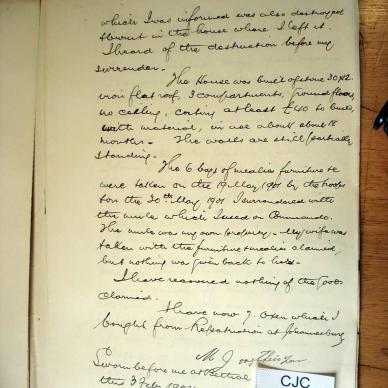 which I was informed was also destroyed
& burnt in the house where I left it.
I heard of the destruction before my
surrender.
The House was built of stone 30 x 12
iron flat roof, 3 compartments, ground floors,
no ceiling, costing at least £40 to build,
with material, in use about about 18
months. The walls are still (partially
standing.
The 6 bags of mealies furniture &c
were taken on the 19 May 1901 by the troops
& on the 20th May 1901 I surrendered with
the mule which I used on Commando.
The mule was my own property. My wife was
taken with the furniture & mealies claimed,
but nothing was given back to her.
I have received nothing of the goods
claimed.
I have now 7 oxen which I
bought from Repatriation at Johannesburg
M J
Sworn before me at
this 3 Feb
CJC